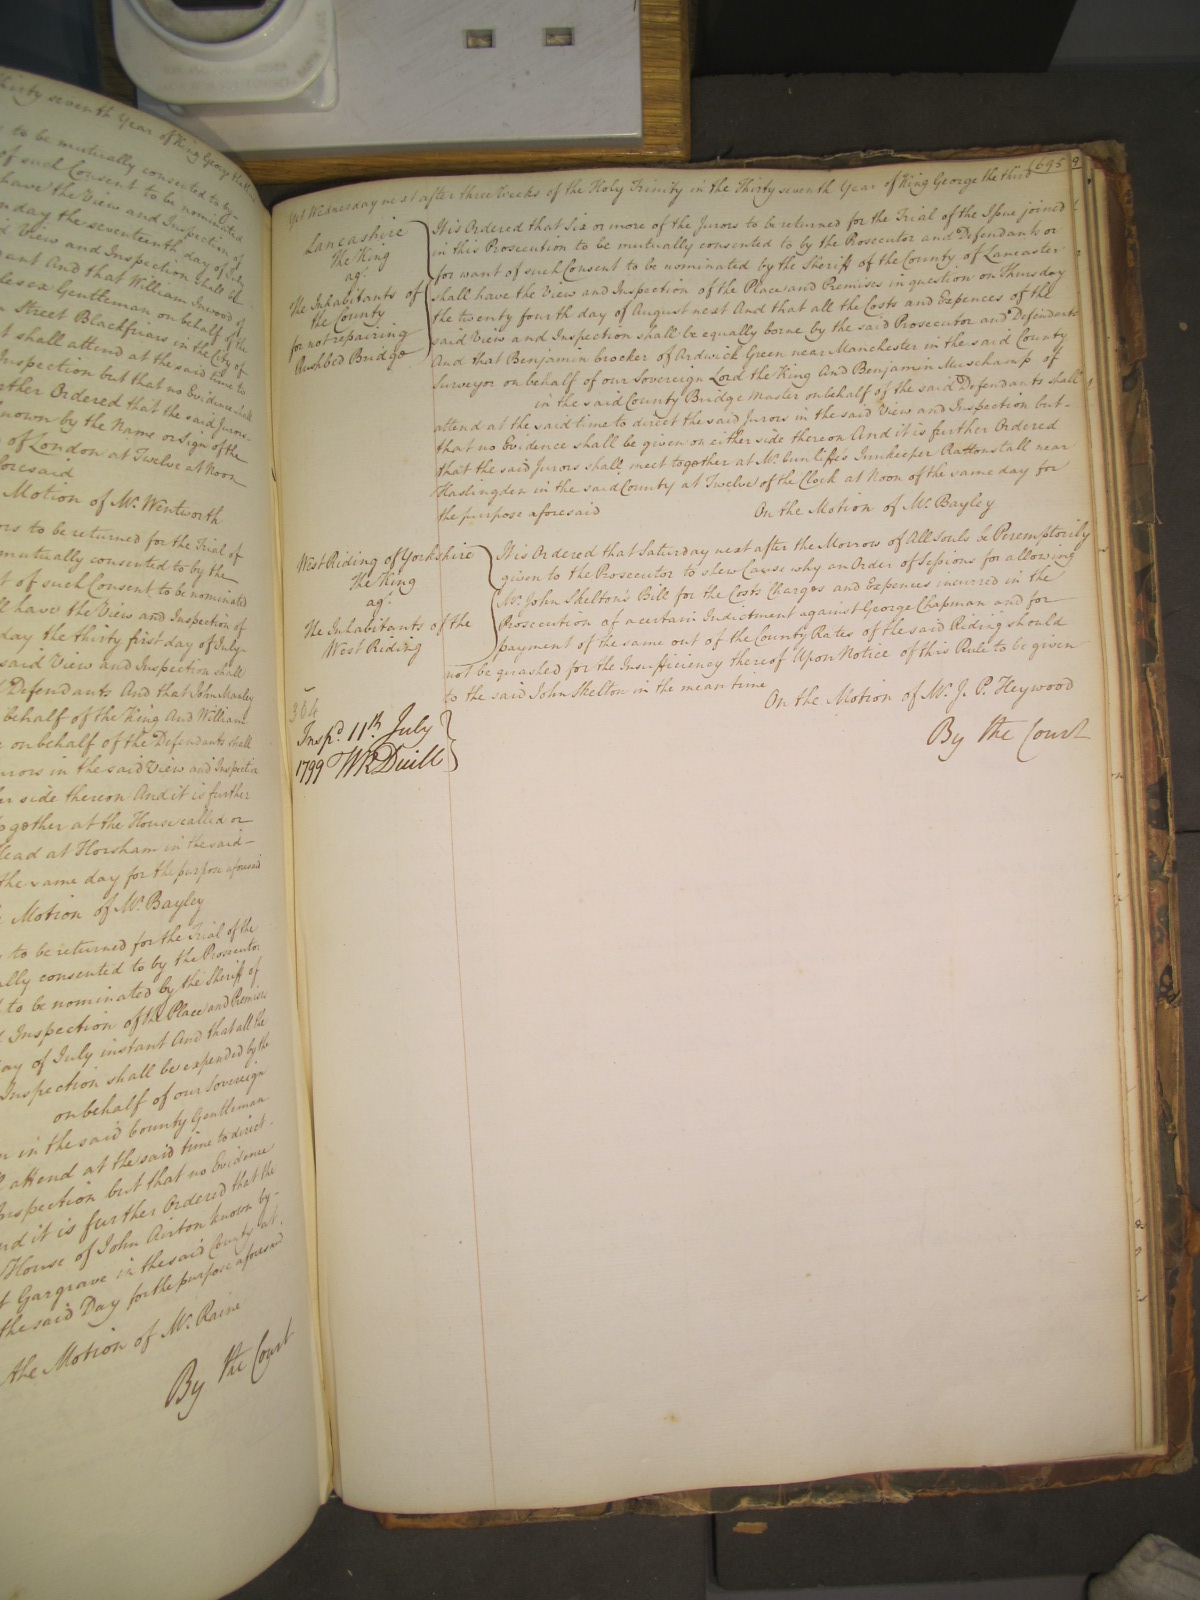 Thirty seventh Year of King George the
to be mutually consented to by
of such Consent to be nominated
have the View and Inspection of
day the seventeenth day of July
View and Inspection shall be
And that William Inwood of
Gentleman on behalf of the
Street Blackfriars in the City of
shall attend at the said time to
Inspection but that no Evidence shall
further Ordered that the said Jurors
known by the Name or Sign of the
of London at Twelve at Noon
aforesaid
Motion of Mr. Wentworth
to be returned for the Trial of
mutually consented to by the
of such Consent to be nominated
have the View and Inspection of
day the thirty first day of July
said View and Inspection shall
Defendants And that John Manley
behalf of the King And William
on behalf of the Defendants shall
Jurors in the said View and Inspection
side thereon And it is further
together at the House called or
Head at Horsham in the said
the same day for the purpose aforesaid
Motion of Mr. Bayley
to be returned for the Trial of the
consented to by the Prosecutor
to be nominated by the Sheriff of
Inspection of the Place and Premises
day of July instant And that all the
Inspection shall be expended by the
on behalf of our Sovereign
in the said County Gentleman
attend at the said time to direct
Inspection but that no Evidence
And it is further Ordered that the
House of John Airton known by
Gargrave in the said County at
the said Day for the purpose aforesaid
the Motion of Mr. Raine
By the Court
695
Yet Wednesday next after three Weeks of the Holy Trinity in the Thirty seventh Year of King George the third
Lancashire
The King
agt.
The Inhabitants of
the County
for not repairing
Bridge
It is Ordered that Six or more of the Jurors to be returned for the Trial of the Issue joined
in this Prosecution to be mutually consented to by the Prosecutor and Defendants or
for want of such Consent to be nominated by the Sheriff of the County of Lancaster
shall have the View and Inspection of the Place and Premises in question on Thursday
the twenty fourth day of August next And that all the Costs and Expences of the
said View and Inspection shall be equally borne by the said Prosecutor and Defendants
And that Benjamin brocker of Ardwick Green near Manchester in the said County
Surveyor on behalf of our Sovereign Lord the King And Benjamin Muschamp of
in the said County Bridge Master on behalf of the said Defendants shall
attend at the said time to direct the said Jurors in the said View and Inspection but
that no Evidence shall be given on either side thereon And it is further Ordered
that the said Jurors shall meet together at Mr. Cunliffe's Innkeeper Rattonstall near
Haslingden in the said County at Twelve of the Clock at Noon of the same day for
the purpose aforesaid
On the Motion of Mr. Bayley
West Riding of Yorkshire
The King
agt.
The Inhabitants of the
West Riding
It is Ordered that Saturday next after the Morrow of All Souls be Peremptorily
given to the Prosecutor to shew Cause why an Order of Sessions for allowing
Mr. John Skelton's Bill for the Costs Charges and Expences incurred in the
Prosecution of a certain Indictment against George Chapman and for
payment of the same out of the County Rates of the said Riding should
not be quashed for the Insufficiency thereof Upon Notice of this Rule to be given
to the said John Skelton in the mean time
On the Motion of Mr. J. P. Heywood
By the Court
364
Inspd. 11th. July
1799